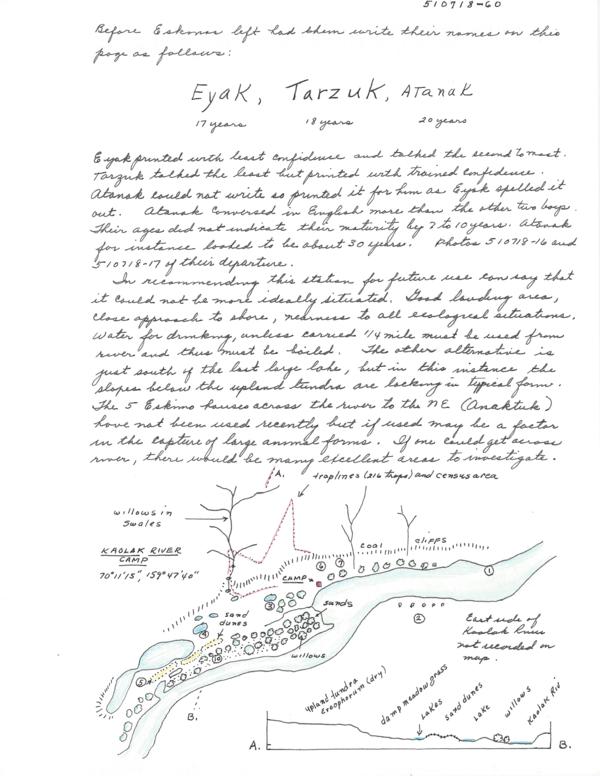 510718-60
Before Eskimos left had them write their names on this
page as follows:
Eyak, Tarzuk, Atanak
17 years 18 years 20 years
Eyak printed with least confidence and talked the second to most.
Tarzuk talked the least but printed with trained confidence.
Atanak could not write so printed it for him as Eyak spelled it
out. Atanak conversed in English more than the other two boys.
Their ages did not indicate their maturity by 7 to 10 years. Atanak
for instance looked to be about 30 years. Photos 510718-16 and
510718-17 of their departure.
In recommending this station for future use can say that
it could not be more ideally situated. Good landing area,
close approach to shore, nearness to all ecological situations.
Water for drinking, unless carried 1/4 mile must be used from
river and thus must be boiled. The other alternative is
just south of the last large lake, but in this instance the
slopes below the upland tundra are lacking in typical form.
The 5 Eskimo houses across the river to the NE (Anaktuk)
have not been used recently but if used may be a factor
in the capture of large animal forms. If one could get across
river, there would be many excellent areas to investigate.
A.
traplines (216 traps) and census area
willows in
swales
coal cliffs
KAOLAK RIVER
CAMP
70°11'15", 159°47'40"
CAMP
6
7
1
3
sands
sand
dunes
4
willows
2
East side of
Kaolak River
not recorded on
map.
5
10
B.
upland tundra
Eriophorum (dry)
damp meadow grass
Lakes
sand dunes
Lake
willows
Kaolak Riv
A.
B.